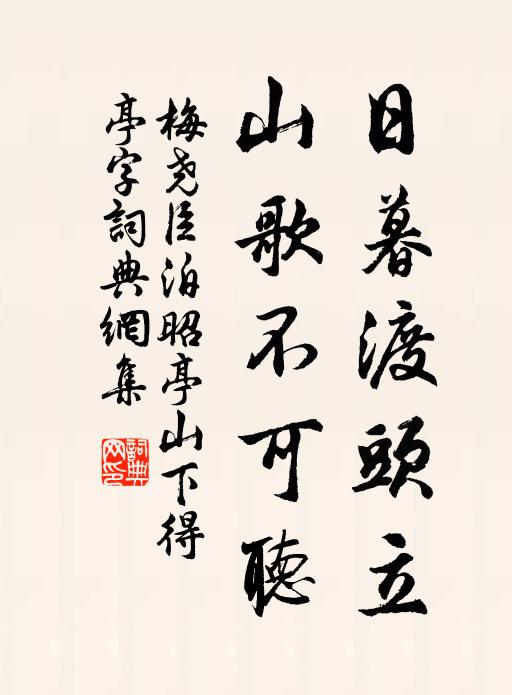 日暮渡頭立
山歌不可聽
梅尧臣泊昭亭山下得
亭字詞典網集
詞典
网印